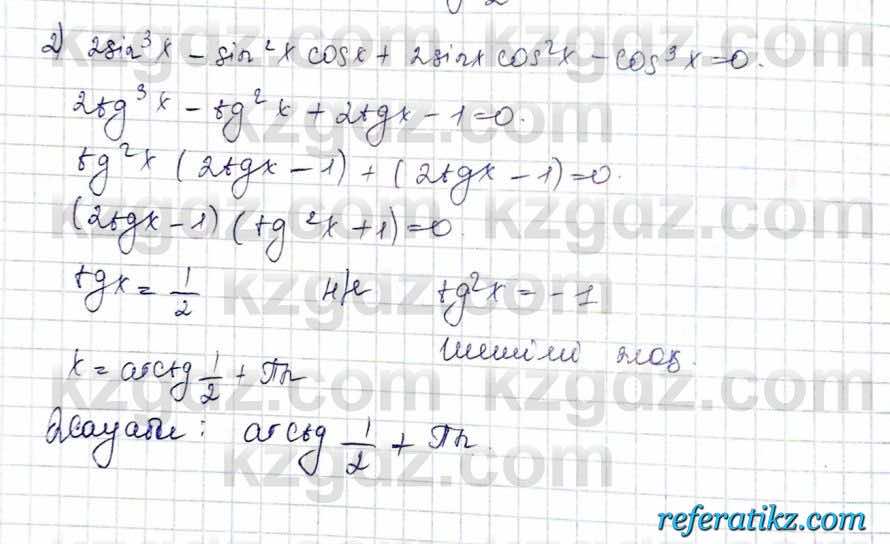 2) 2sin³x - sin²x cosx + 2sinx cos²x - cos³x = 0.
2tg³x - tg²x + 2tgx - 1 = 0.
tg²x (2tgx - 1) + (2tgx - 1) = 0.
(2tgx - 1) (tg²x + 1) = 0.
tgx = 1/2 н/е tg²x = -1
x = arctg 1/2 + πn шешімі жоқ.
Жауабы: arctg 1/2 + πn.
kzgdz.com
referatikz.com